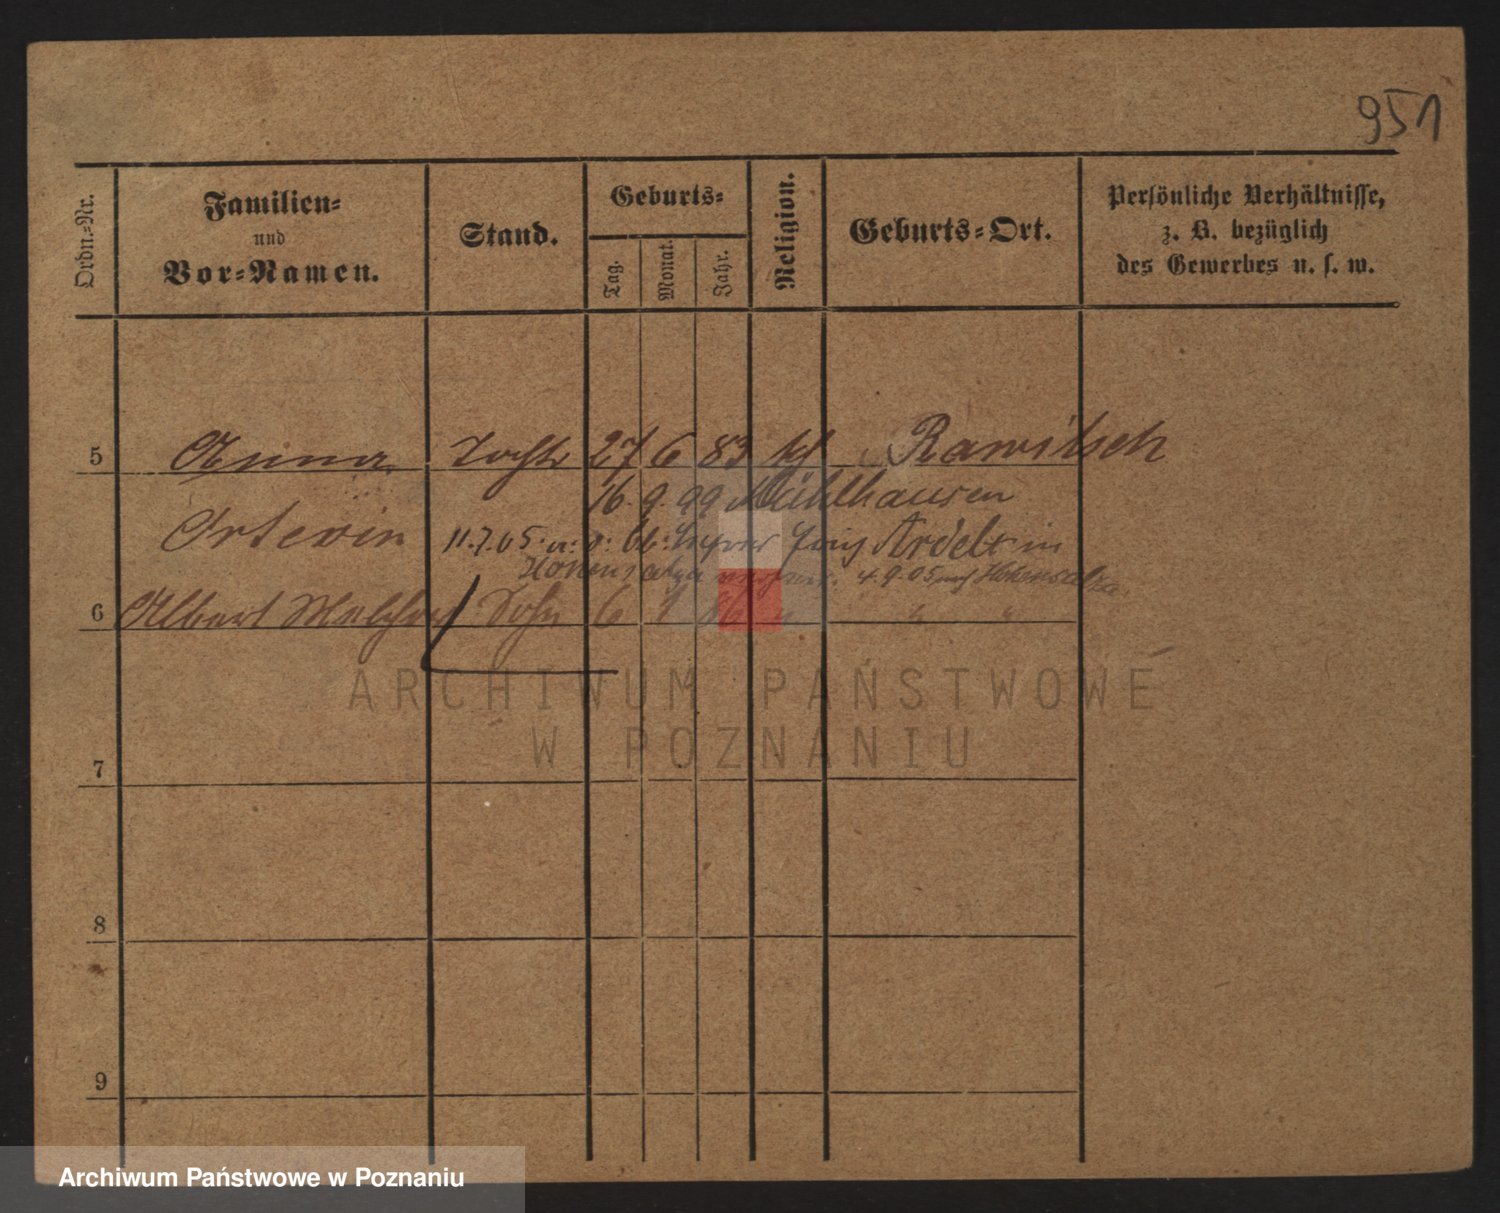 951
Ordn.-Nr.
Familien-
und
Vor-Namen.
Stand.
Geburts-
Tag.
Monat.
Jahr.
Religion.
Geburts-Ort.
Persönliche Verhältnisse,
z. B. bezüglich
des Gewerbes u. s. w.
5 Anna Tocht 27 6 83 Rawitsch
16. 9. 99 Mühlhausen
11.7.05 Ardelt in
Hohensalza 4.9.05 Hohensalza
6 Albert Sohn 6 1 86 " " "
7
8
9
ARCHIWUM PAŃSTWOWE
W POZNANIU
Archiwum Państwowe w Poznaniu